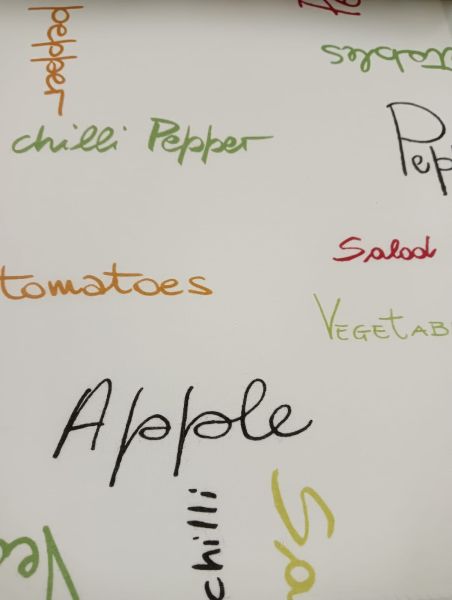 pepper
tables
chilli Pepper
Pep
Salad
tomatoes
VEGETAB
Apple
chilli
Sa
Ve